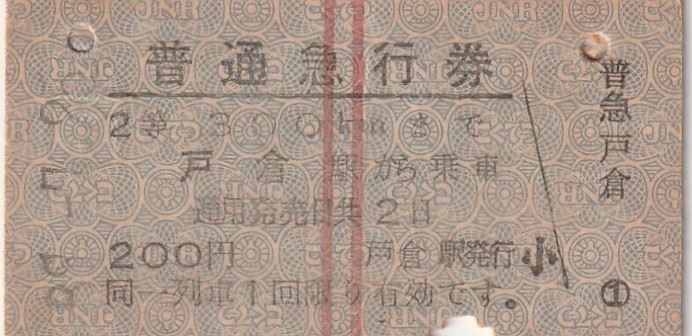 普通急行券
2等 300kmまで
戸倉駅から乗車
通用発売日共2日
200円 戸倉駅発行 小
同一列車1回限り有効です。
普急戸倉
①
JNR
こくてつ